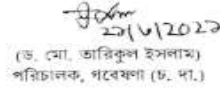 ২২/৬/২০২২
(ড. মো. তারিকুল ইসলাম)
পরিচালক, গবেষণা (চ. দা.)